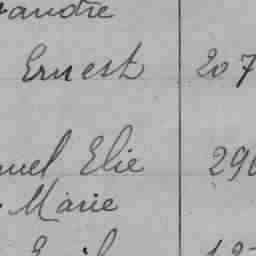 andre
Ernest 207
uel Elie 296
Marie